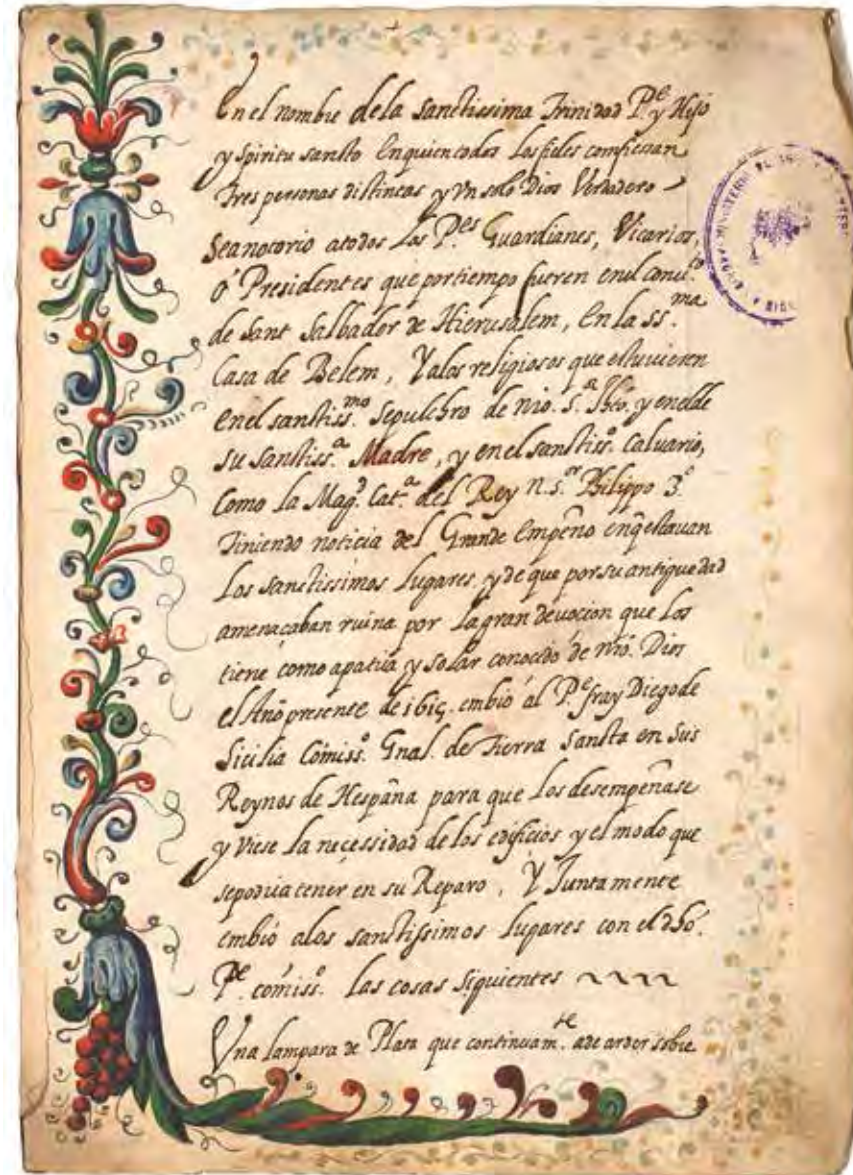 En el nombre dela sanctissima Trinidad P.e y Hijo
y spiritu sancto Enquien todos Los fieles comfiessan
Tres personas distinctas y Vn solo Dios Verdadero
Seanotorio atodos Los P.es Guardianes, Vicarios,
ó Presidentes que portiempo fueren enel conu.to
de Sant Salbador de Hierusalem, En La ss.ma
Casa de Belem, Yalos religiosos que estuvieren
enel sanctiss.mo Sepulchro de nro. s.r Jhto. y enelde
su sanctiss.a Madre, y enel sanctiss.o Caluario,
Como La Mag.d Cat.a del Rey n.s.or Philippo 3.o
Tiniendo noticia del Grande Empeño enq̃ estauan
Los sanctissimos Lugares y de que por su antiguedad
amenaçaban ruina por La gran deuocion que Los
tiene como apatria y solar conocido de nro. Dios
el Año presente de 1615. embió al P.e fray Diego de
Sicilia Comiss.o Gnal. de Tierra Sancta en sus
Reynos de Hespaña para que Los desempeñase
y Viese La necessidad de los edificios y el modo que
sepodria tener en su Reparo, Y Juntamente
embió alos sanctissimos Lugares con el dho.
P.e comiss.o Las cosas siguientes
Vna Lampara de Plata que continuam.te ade arder sobre
MINISTERIO